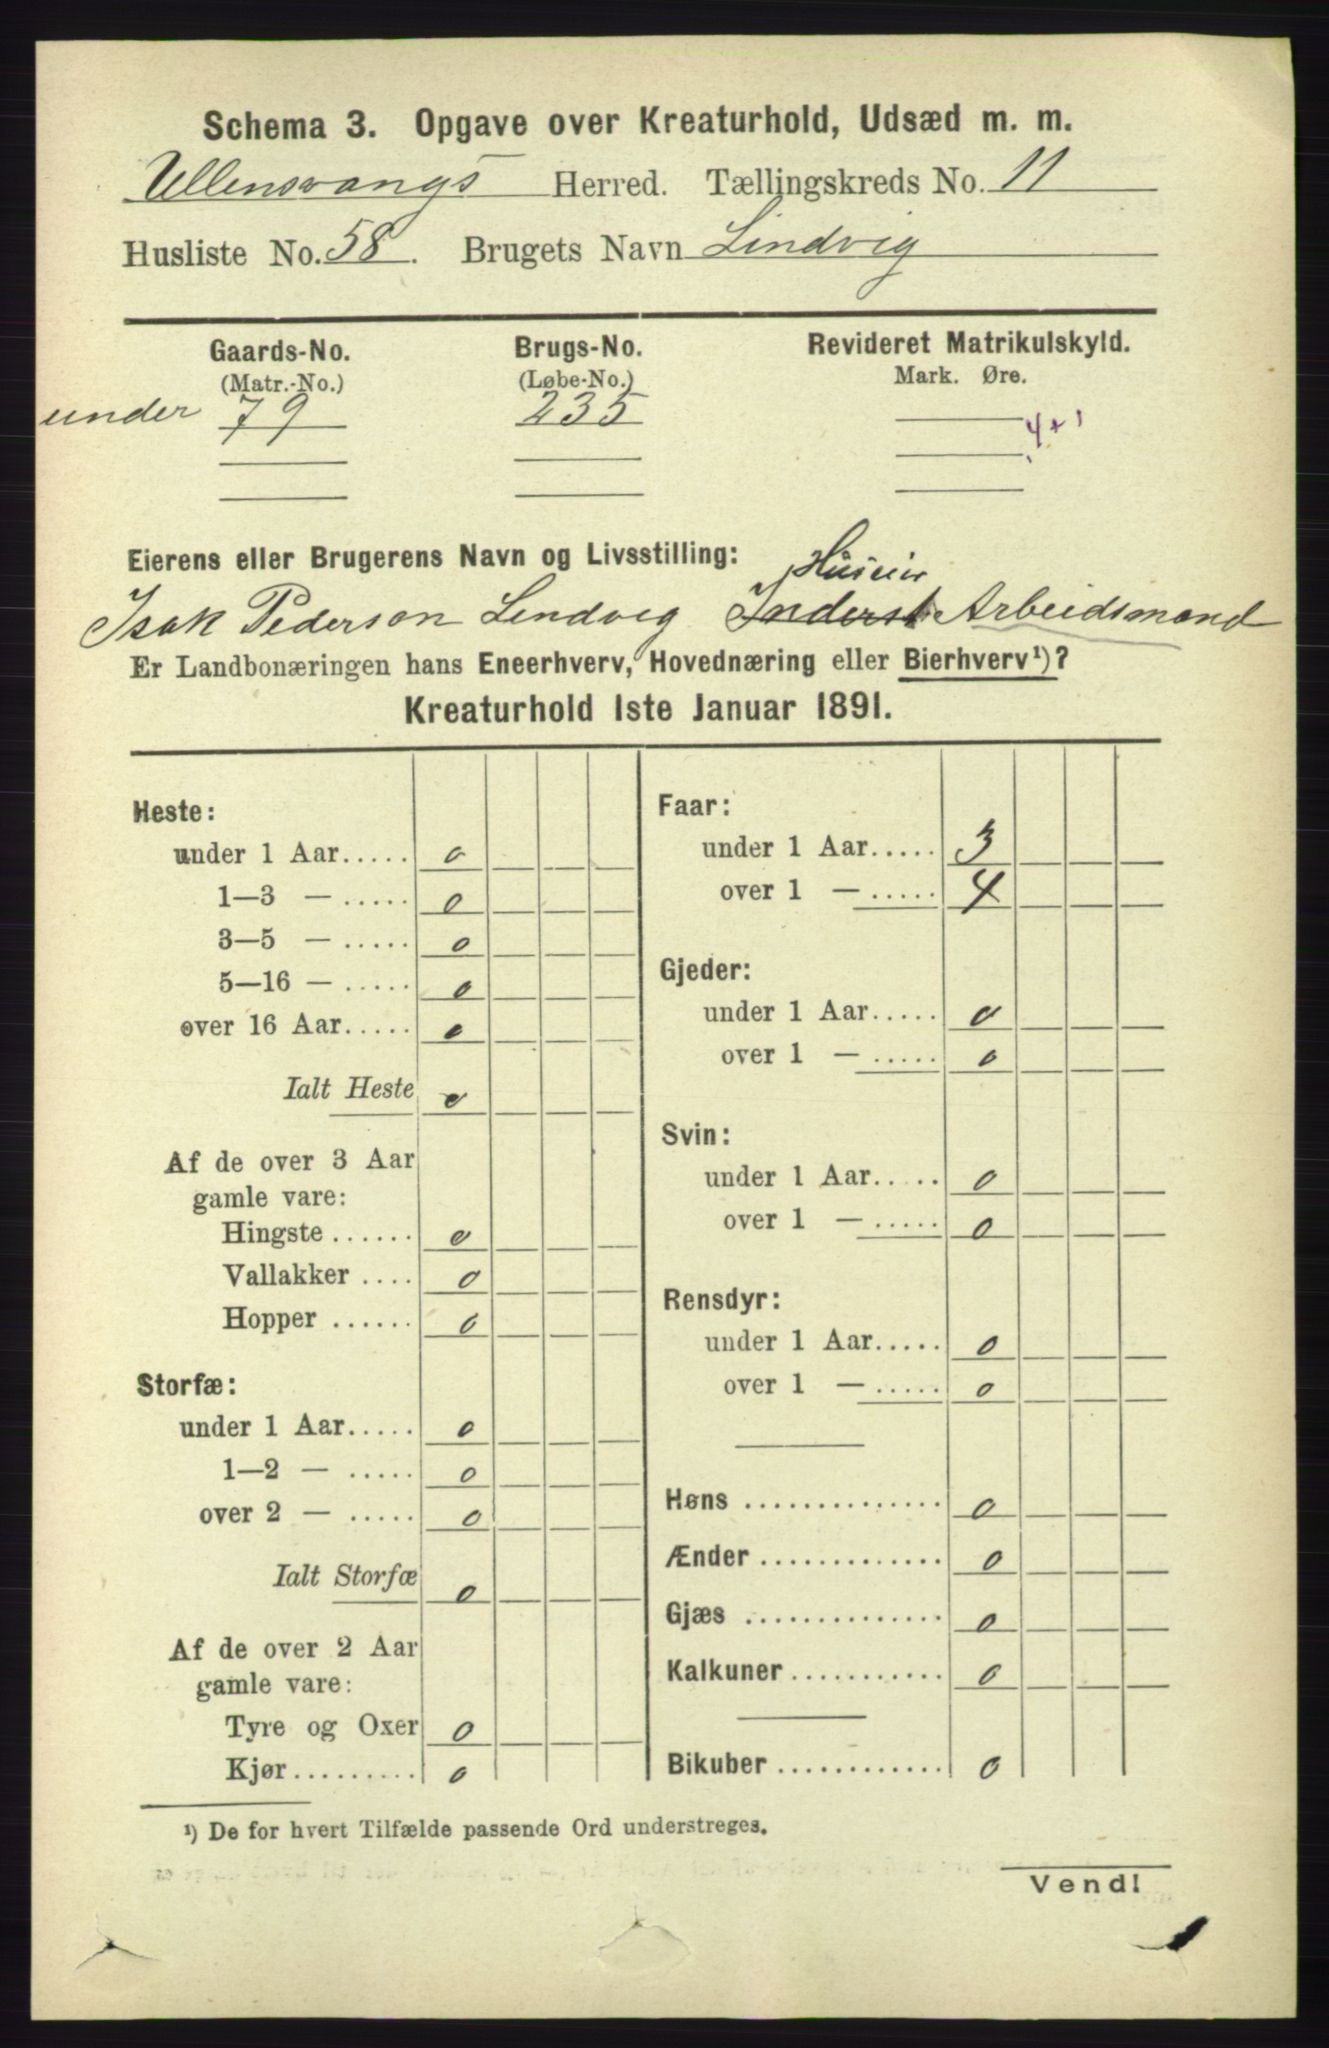 Schema 3. Opgave over Kreaturhold, Udsæd m. m.
Ullensvangs Herred. Tællingskreds No. 11
Husliste No. 58. Brugets Navn Lindvig
Gaards-No. Brugs-No. Revideret Matrikulskyld.
(Matr.-No.) (Løbe-No.) Mark. Øre.
under 79 235
4 + 1
Eierens eller Brugerens Navn og Livsstilling:
Huseier
Isak Pederson Lindvig Inderst Arbeidsmand
Er Landbonæringen hans Eneerhverv, Hovednæring eller Bierhverv¹)?
Kreaturhold 1ste Januar 1891.
Heste:
under 1 Aar..... 0
1—3 — ..... 0
3—5 — ..... 0
5—16 — ..... 0
over 16 Aar..... 0
Ialt Heste 0
Af de over 3 Aar
gamle vare:
Hingste ...... 0
Vallakker .... 0
Hopper ...... 0
Storfæ:
under 1 Aar..... 0
1—2 — ..... 0
over 2 — ..... 0
Ialt Storfæ 0
Af de over 2 Aar
gamle vare:
Tyre og Oxer 0
Kjør......... 0
Faar:
under 1 Aar..... 3
over 1 — ..... 4
Gjeder:
under 1 Aar..... 0
over 1 — ..... 0
Svin:
under 1 Aar..... 0
over 1 — ..... 0
Rensdyr:
under 1 Aar..... 0
over 1 — ..... 0
Høns .............. 0
Ænder ............. 0
Gjæs .............. 0
Kalkuner........... 0
Bikuber ............ 0
¹) De for hvert Tilfælde passende Ord understreges.
Vend!